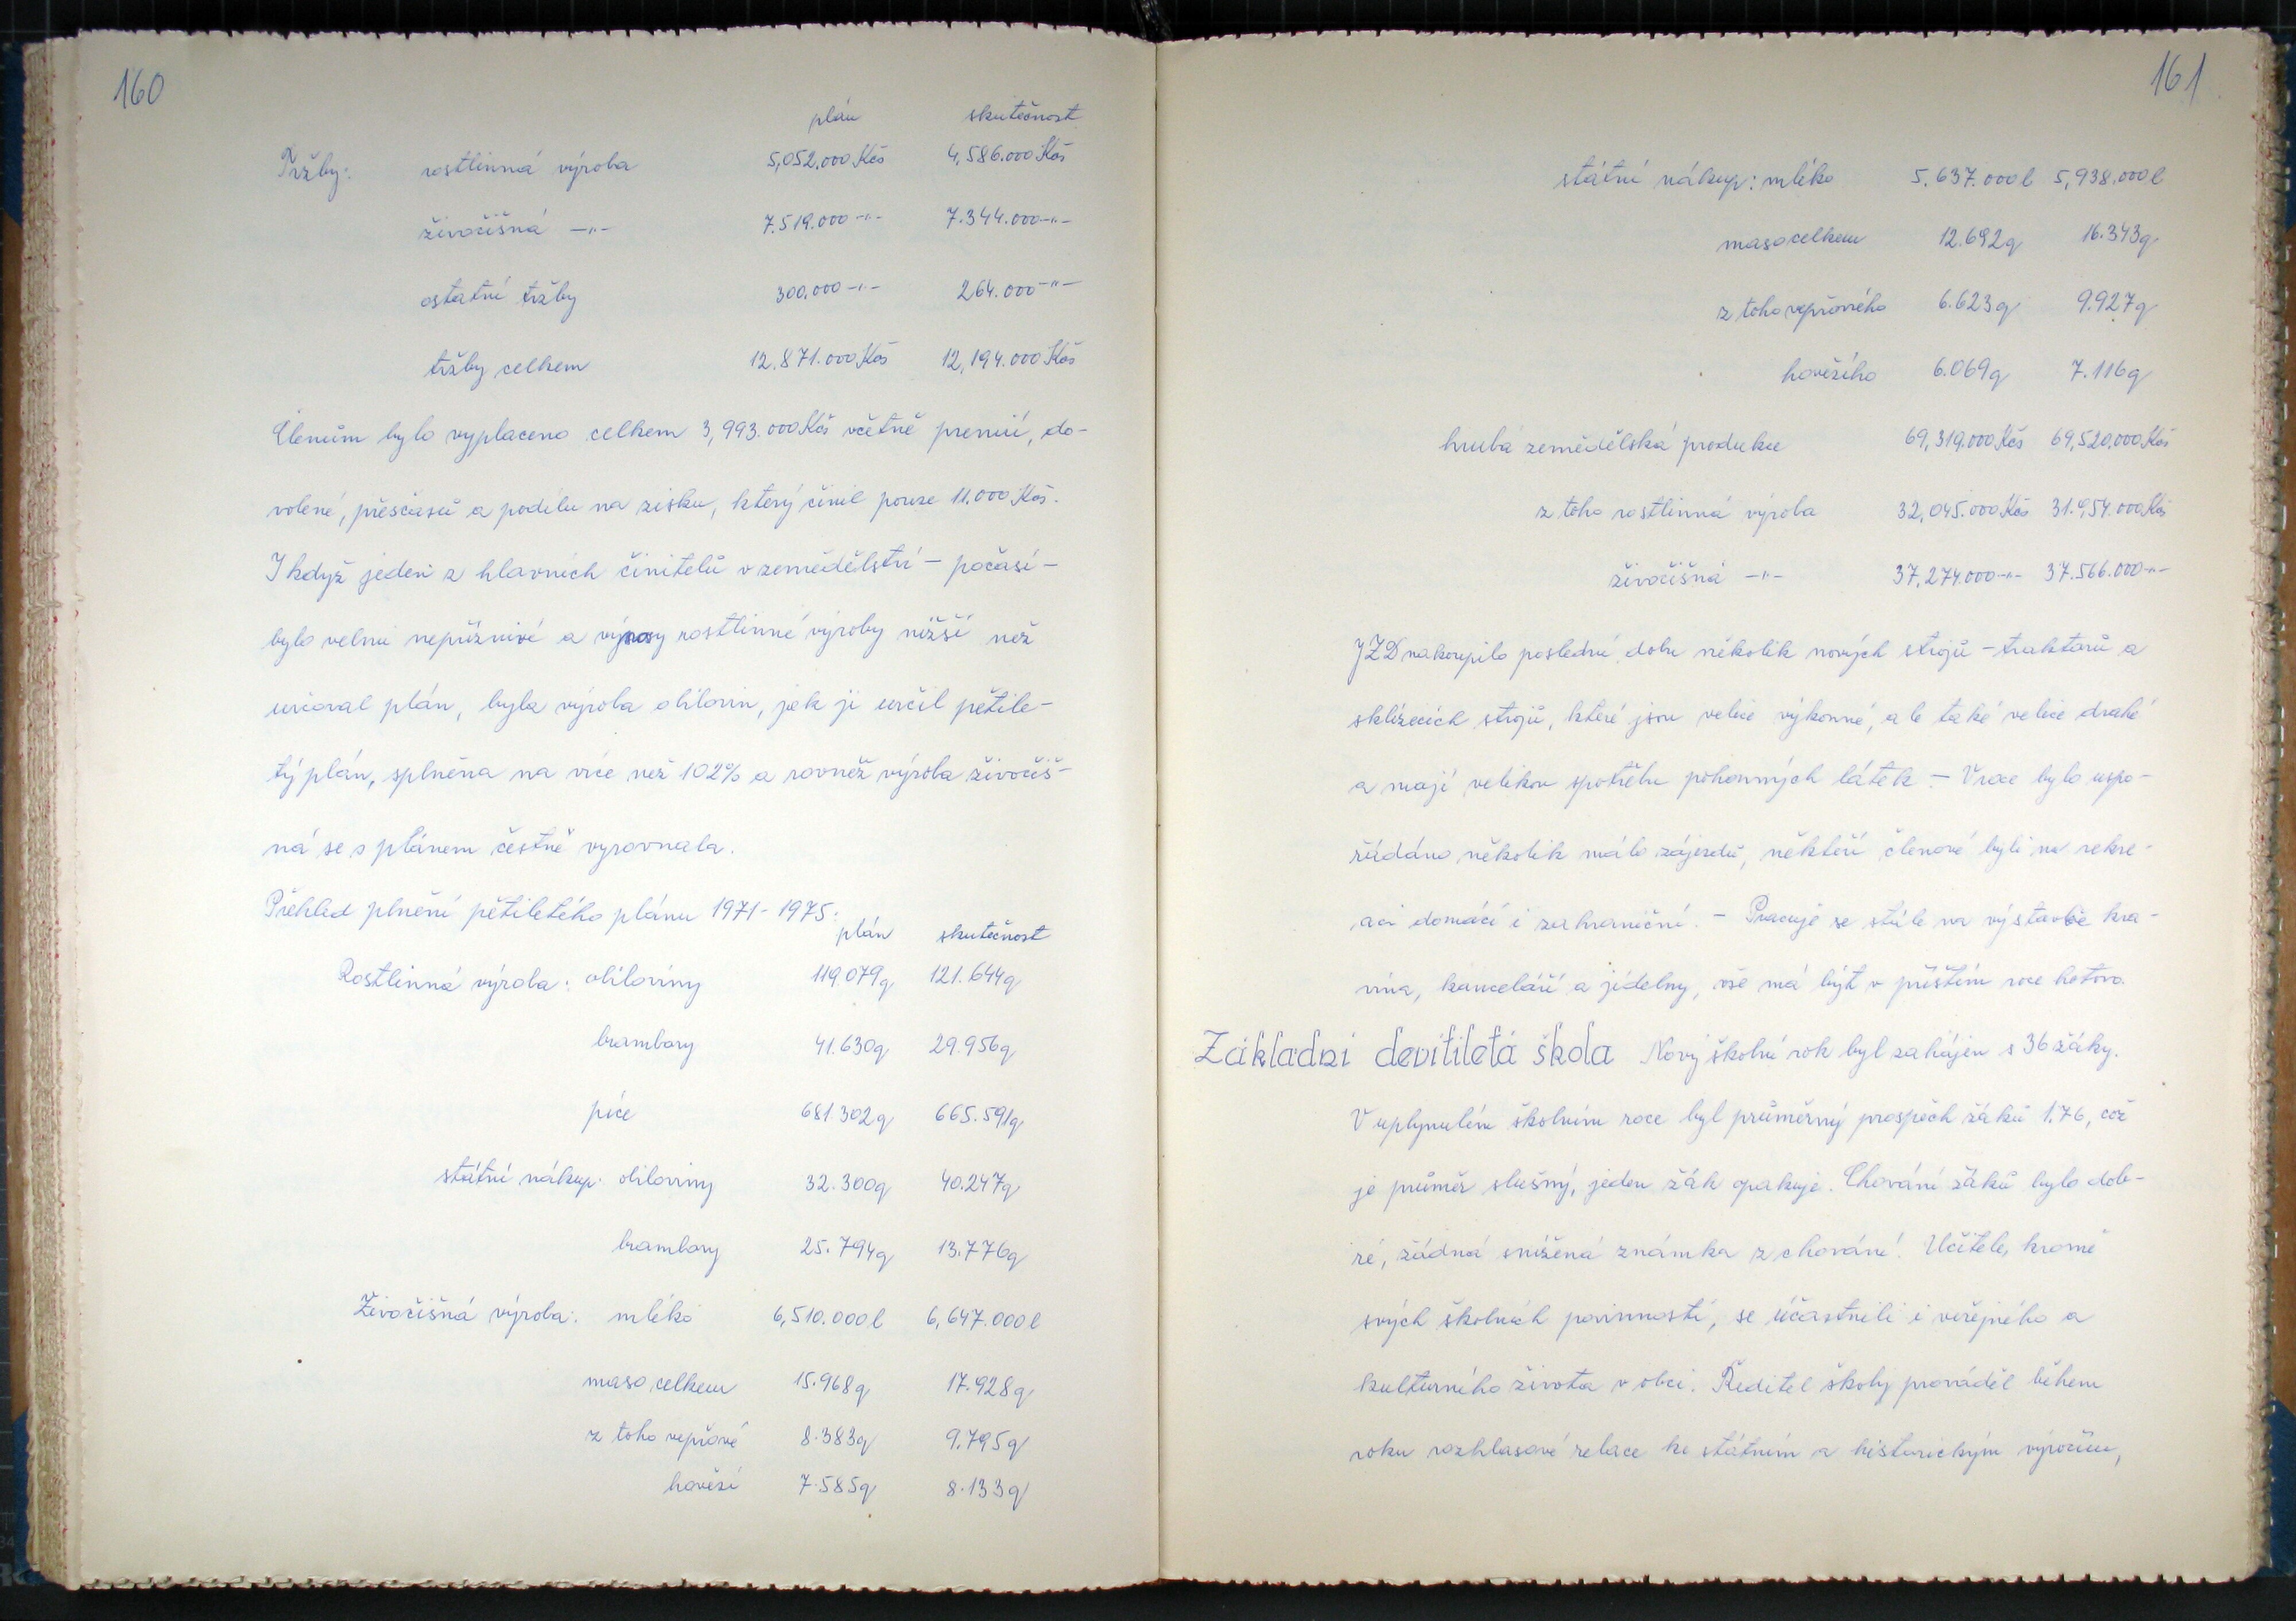 160
plán skutečnost
Tržby: rostlinná výroba 5,052.000 Kčs 4,586.000 Kčs
živočišná -"- 7.519.000 -"- 7.344.000 -"-
ostatní tržby 300.000 -"- 264.000 -"-
tržby celkem 12.871.000 Kčs 12,194.000 Kčs
Členům bylo vyplaceno celkem 3,993.000 Kčs včetně premií, do-
volené, přesčasů a podílu na zisku, který činil pouze 11.000 Kčs.
I když jeden z hlavních činitelů v zemědělství - počasí -
bylo velmi nepříznivé a výnosy rostlinné výroby nižší než
určoval plán, byla výroba obilovin, jak ji určil pětile-
tý plán, splněna na více než 102% a rovněž výroba živočiš-
ná se s plánem čestně vyrovnala.
Přehled plnění pětiletého plánu 1971 - 1975:
plán skutečnost
Rostlinná výroba: obiloviny 119.079q 121.644q
brambory 41.630q 29.956q
píce 681.302q 665.591q
státní nákup: obiloviny 32.300q 40.247q
brambory 25.794q 13.776q
Živočišná výroba: mléko 6,510.000 l 6,647.000 l
maso celkem 15.968q 17.928q
z toho vepřové 8.383q 9.795q
hovězí 7.585q 8.133q
161
státní nákup: mléko 5.637.000 l 5,938.000 l
maso celkem 12.692q 16.343q
z toho vepřového 6.623q 9.927q
hovězího 6.069q 7.116q
hrubá zemědělská produkce 69,319.000 Kčs 69,520.000 Kčs
z toho rostlinná výroba 32,045.000 Kčs 31.954.000 Kčs
živočišná -"- 37,274.000 -"- 37.566.000 -"-
JZD nakoupilo poslední dobu několik nových strojů - traktorů a
sklízecích strojů, které jsou velice výkonné, ale také velice drahé
a mají velikou spotřebu pohonných látek. - V roce bylo uspo-
řádáno několik málo zájezdů, někteří členové byli na rekre-
aci domácí i zahraniční. - Pracuje se stále na výstavbě kra-
vína, kanceláří a jídelny, vše má být v příštím roce hotovo.
Základní devítiletá škola Nový školní rok byl zahájen s 36 žáky.
V uplynulém školním roce byl průměrný prospěch žáků 1.76, což
je průměr slušný, jeden žák opakuje. Chování žáků bylo dob-
ré, žádná snížená známka z chování. Učitelé, kromě
svých školních povinností, se účastnili i veřejného a
kulturního života v obci. Ředitel školy prováděl během
roku rozhlasové relace ke státním a historickým výročím,